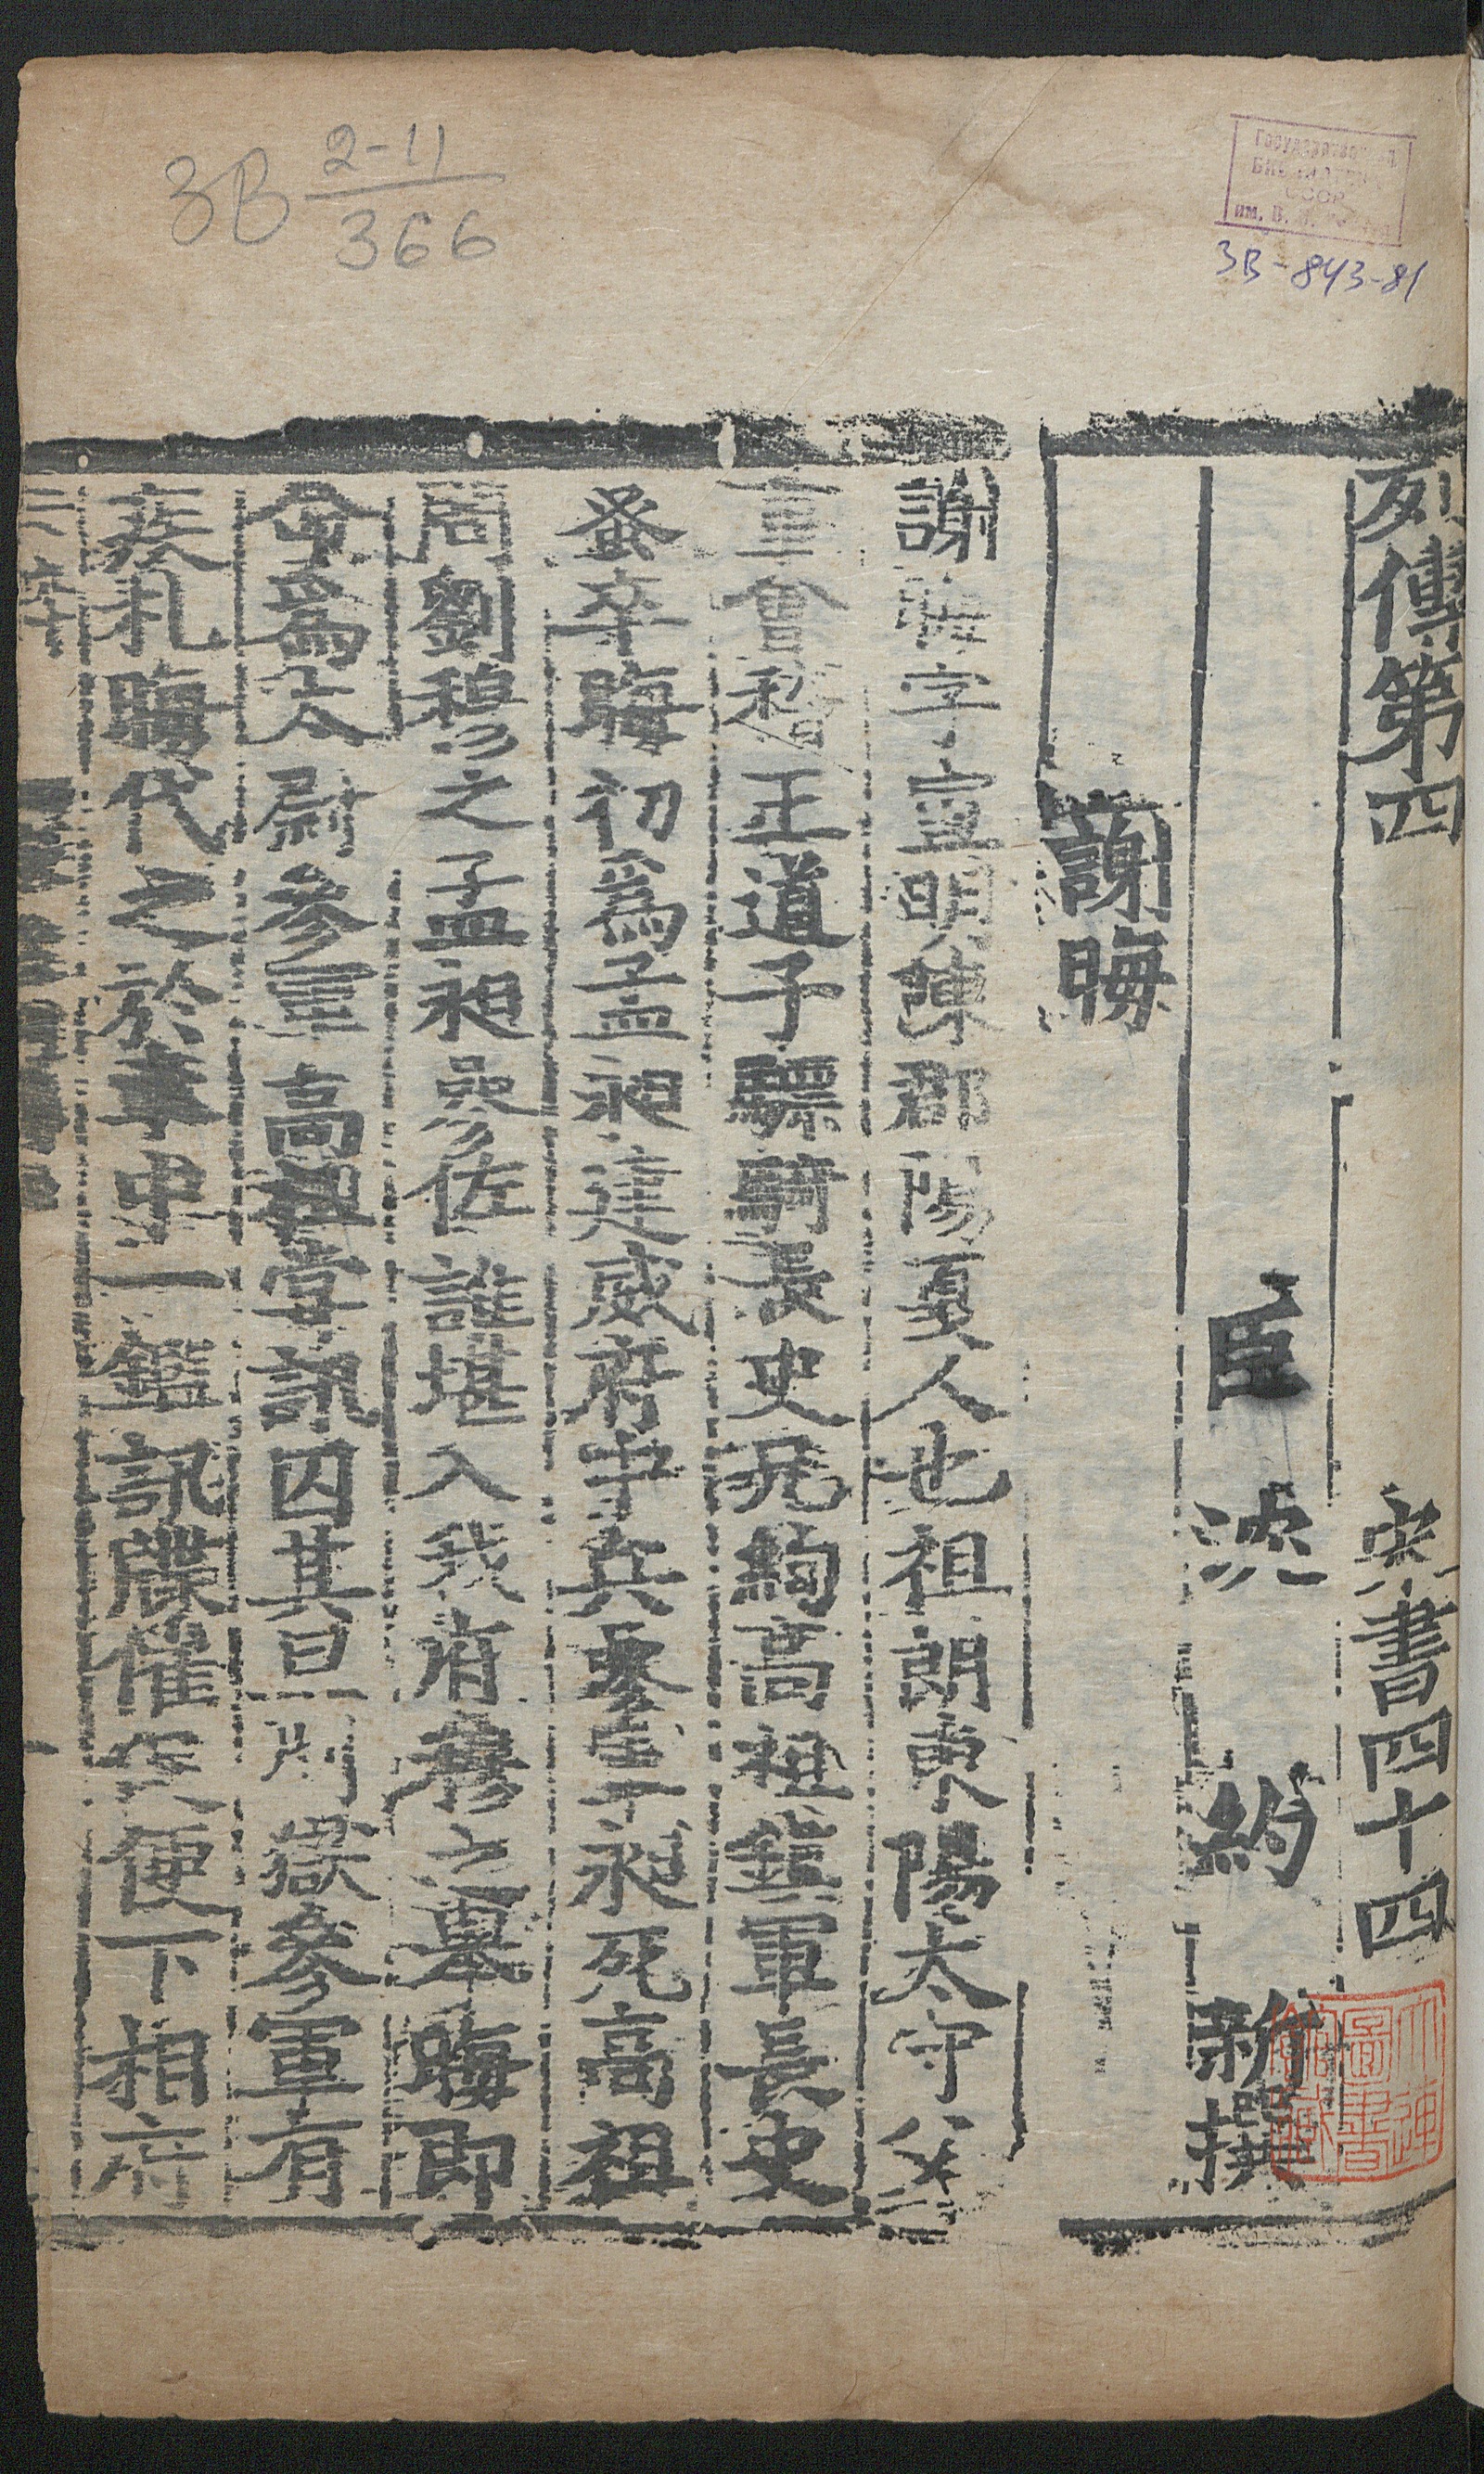 3B 2-11
366
СССР
3B-843-81
列傳第四 宋書四十四
臣沈約新撰
謝晦
謝晦字宣明陳郡陽夏人也祖朗東陽太守父
重會稽王道子驃騎長史兄絢高祖鎮軍長史
蚤卒晦初爲孟昶建威府中兵參軍昶死高祖
問劉穆之孟昶參佐誰堪入我府穆之舉晦即
命爲太尉參軍高祖嘗訊囚其旦刑獄參軍有
疾札晦代之於車中一鑑訊牒催促便下相府